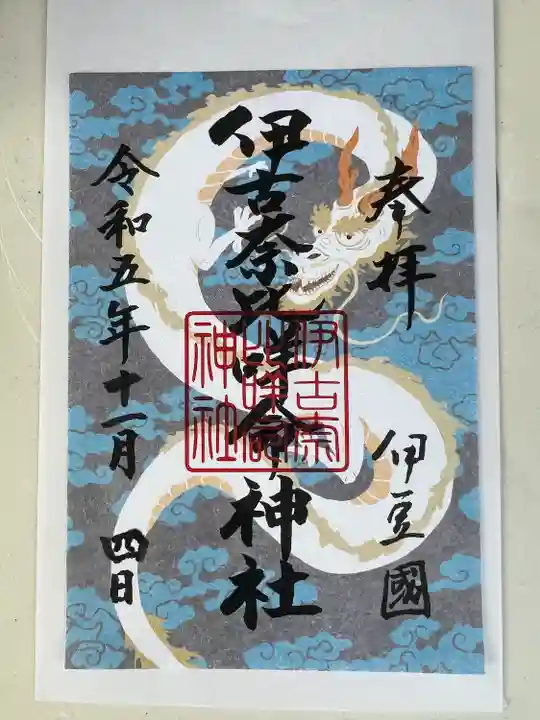 奉拝
伊豆國
伊古奈比咩命神社
伊古奈
比咩命
神社
令和五年十一月
四日